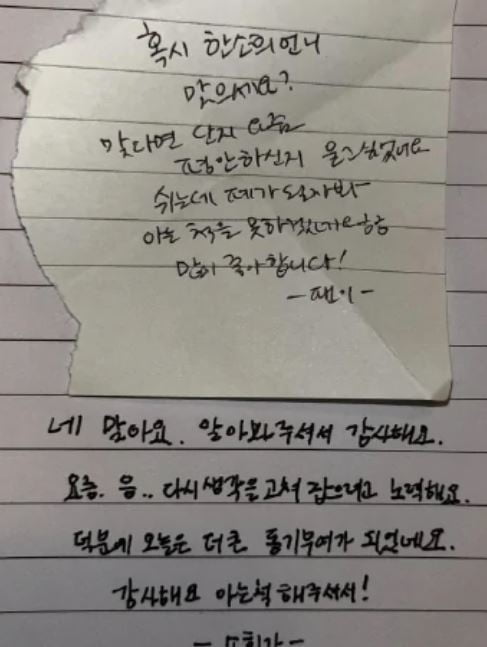 혹시 한소희언니
맞으세요?
맞다면 단지 요즘
평안하신지 묻고싶었어요
쉬는데 폐가 될까봐
아는 척을 못하겠네요ㅎㅎ
많이 좋아합니다!
-팬이-
네 맞아요. 알아봐주셔서 감사해요.
요즘. 음.. 다시 생각을 고쳐 잡으려고 노력해요.
덕분에 오늘은 더 큰 동기부여가 되었네요.
감사해요 아는척 해주셔서!
- 소희가 -